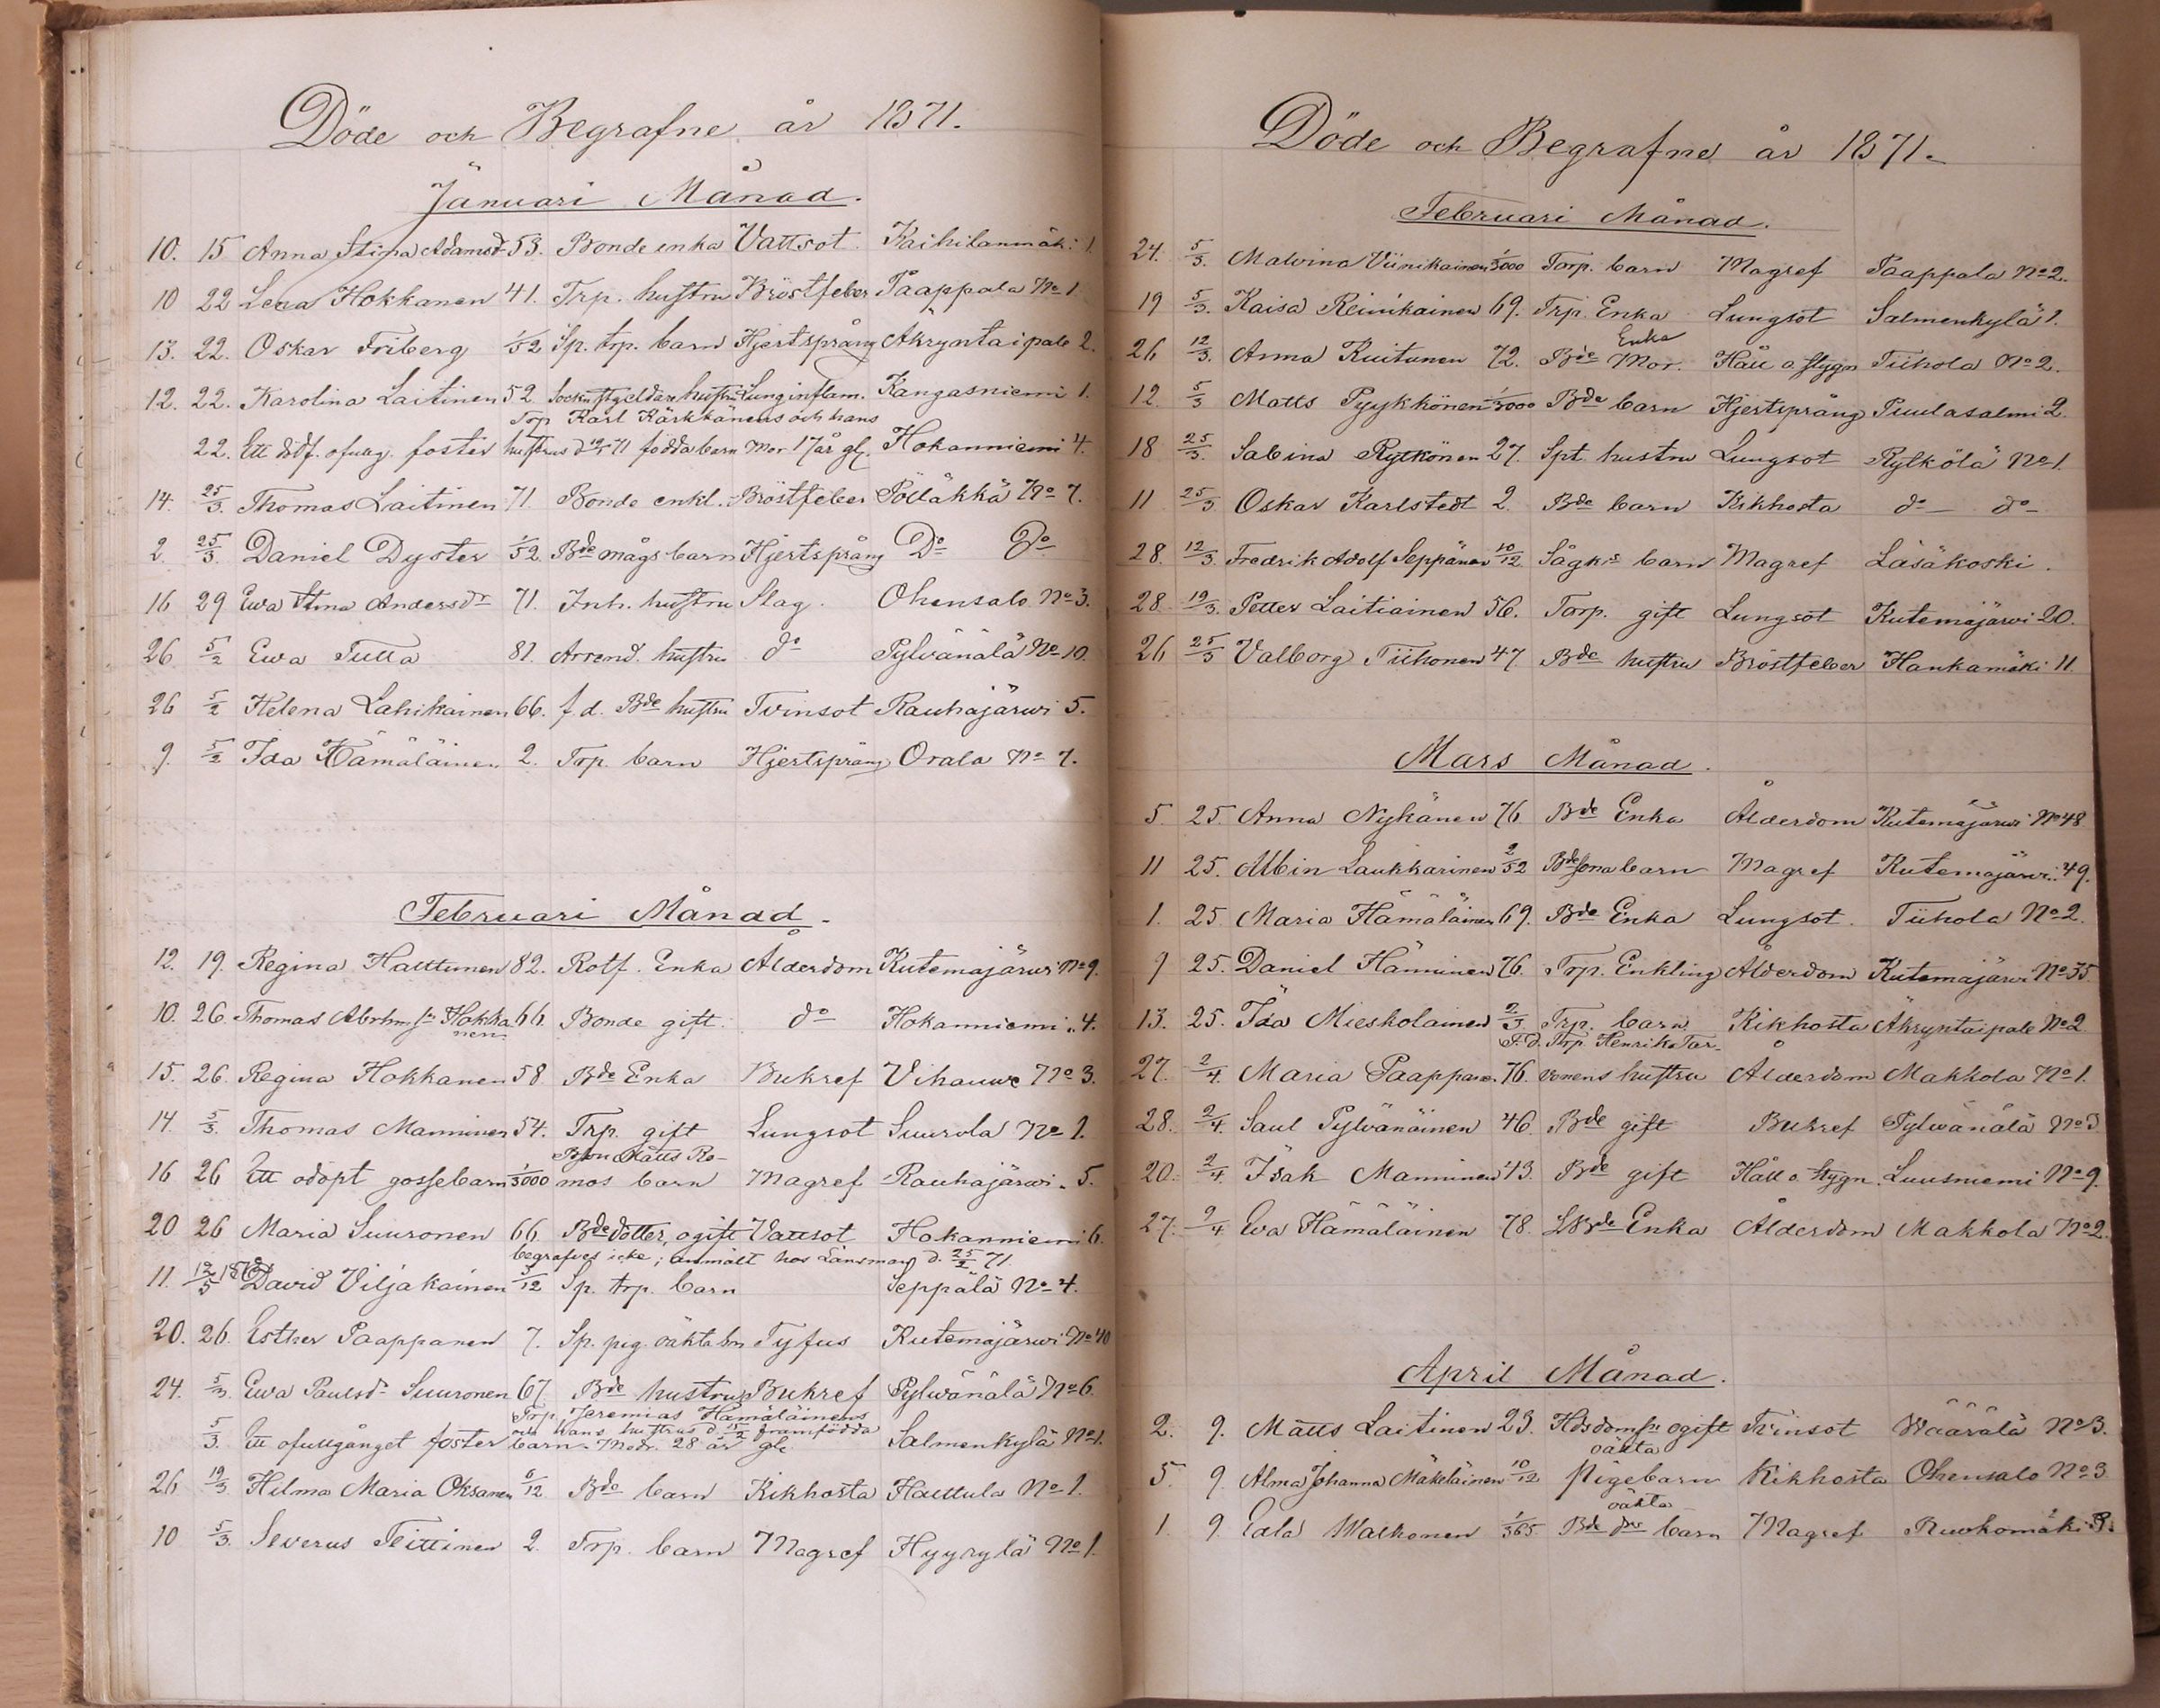 Döde och Begrafne år 1871.
Januari Månad.
10. 15 Anna Stina Adamsd. 53. Bonde enka Vattsot. Kaihilanmäki 1.
10 22 Lena Hokkanen 41. Trp. hustru Bröstfeber Paappala No 1
13. 22. Oskar Friberg 1/52 Sp. trp. barn Hjertsprång Akryntaipale 2.
12. 22. Karolina Laitinen 52. hustru Lunginflam. Kangasniemi 1.
Trp Karl Kärkkäinens och hans
22. Ett dödf. ofullg. foster hustrus d 71 födda barn Mor 17 år gl. Hokanniemi 4.
14. 25/3. Thomas Laitinen 71. Bonde enkl. Bröstfeber Pölläkkä No 7.
2. 25/3. Daniel Dyster 1/52 Bde mågs barn Hjertsprång Do Do
16 29 Ewa Stina Andersdr 71. Inh. hustru Slag. Ohensalo No 3.
26. 5/2 Ewa Tulla 81. Arrend. hustru do Pylvänälä No 10.
26 5/2 Helena Lahikainen 66. f.d. Bde hustru Tvinsot Rauhajärwi 5.
9. 5/2 Ida Hämäläinen 2. Trp. barn Hjertsprång Orala No 7.
Februari Månad.
12. 19. Regina Halttunen 82. Rotf. Enka Ålderdom Kutemajärwi No 9.
10. 26. Thomas Abrhmsn Hokka 66. Bonde gift. do Hokanniemi „ 4.
nen
15. 26. Regina Hokkanen 58 Bde Enka Bukref Vihauwe No 3.
14. 5/3. Thomas Manninen 54. Trp. gift Lungsot Suurola No 1.
Matts Ro-
16 26 Ett odöpt gossebarn 1/3000 mos barn Magref Rauhajärwi „ 5.
20 26 Maria Suuronen 66. Bde dotter, ogift Vattsot Hokanniemi 6.
begrafves icke; anmält hos Länsman d. 25/2 71.
11. 12/3 David Viljakainen /12 Sp. trp. barn Seppälä No 4.
20. 26. Esther Paappanen 7. Sp. pig. oäkta bn Tyfus Kutemajärwi No 40
24. 5/3. Ewa Paulsdr Suuronen 67. Bde hustru Bukref Pylwänälä No 6.
Trp. Jeremias Hämäläinens
och hans hustrus d. 15/2 framfödda
5/3. Ett ofullgånget foster barn. Modr. 28 år gl. Salmenkylä No 1.
26 19/3 Hilma Maria Oksanen 6/12 Bde barn Kikhosta Hauttula No 1.
10 5/3. Severus Teittinen 2. Trp. barn Magref Hyyrylä No 1.
Döde och Begrafne år 1871.
Februari Månad.
24. 5/3. Malvina Viinikainen 1/3000 Torp. barn Magref Paappala No 2.
19 5/3. Kaisa Reinikainen 69. Trp. Enka Lungsot Salmenkylä 1.
Enka
26 12/3. Anna Kuitunen 72. Bde Mor. Håll o. stygn Tiihola No 2.
12. 5/3 Matts Pyykkönen 1/3000 Bde barn Hjertsprång Puulasalmi 2.
18 25/3. Sabina Rytkönen 27. Spt. hustru Lungsot Rytkölä No 1.
11 25/3 Oskar Karlstedt 2. Bde barn Kikhosta do do
28. 12/3. Fredrik Adolf Seppänen 10/12 Sågks barn Magref Läsäkoski.
28. 19/3. Petter Laitiainen 56. Torp. gift Lungsot Kutemajärwi 20.
26 25/3 Valborg Tiihonen 47. Bde hustru Bröstfeber Hankamäki 11.
Mars Månad.
5. 25. Anna Nykänen 76. Bde Enka Ålderdom Kutemajärwi No 48
11 25. Albin Laukkarinen 2/52 Bdesona barn Magref Kutemajärwi „ 49.
1. 25 Maria Hämäläinen 69. Bde Enka Lungsot. Tiihola No 2.
9 25. Daniel Hänninen 76. Trp. Enkling Ålderdom Kutemajärwi No 35.
13. 25. Ida Mieskolainen Trp. barn Kikhosta Äkryntaipale No 2
F.d. Trp. Henrik Tar-
27. 2/4. Maria Paappanen 76. vonens hustru Ålderdom Makkola No 1.
28. 2/4. Saul Pylvänäinen 46. Bde gift Bukref Pylwänälä No 3
20. 2/4. Isak Manninen 43. Bde gift Håll o. stygn. Luusniemi No 9.
27. 2/4 Eva Hämäläinen 78. Bde Enka Ålderdom Makkola No 2.
April Månad.
2. 9. Matts Laitinen 23. ogift Tvinsot Wäärälä No 3.
oäkta
5. 9. Alma Johanna Mäkeläinen 10/12 Pigebarn Kikhosta Ohensalo No 3
oäkta
1. 9. Edla Walkonen 1/365 Bde dtr barn Magref Ruokomäki